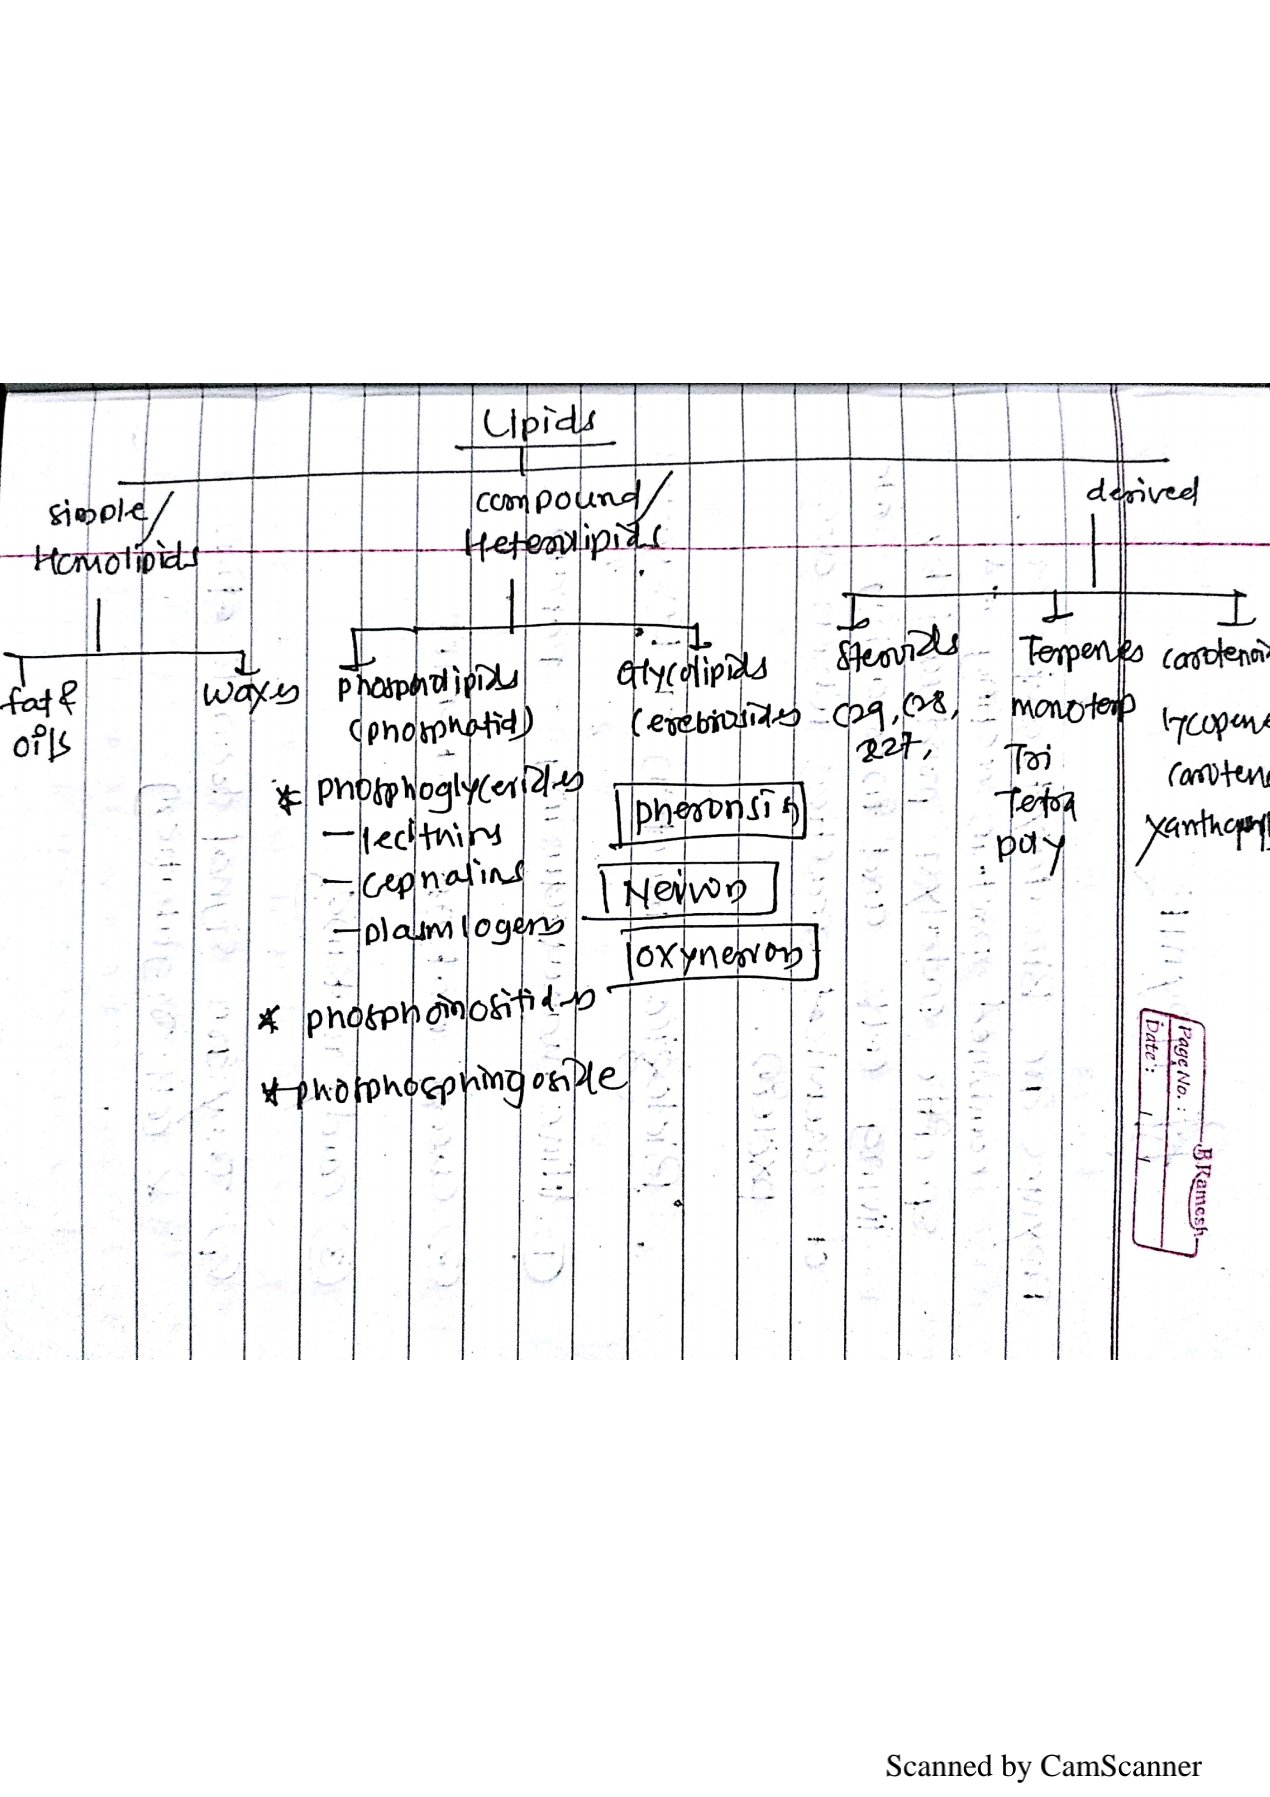 Lipids
simple/
Homolipids
compound/
Heterolipids
derived
fat &
oils
waxes
phospholipids
(phosphatid)
* phosphoglycerides
- lecithins
- cephalins
- plasmlogens
* phosphoinositides
* phosphosphingoside
Glycolipids
(cerebrosides
pheronsin
Nervon
oxynervon
Steroids
C29, C28,
C27,
Terpenes
monoterp
Tri
Tetra
poly
carotenoi
lycopene
carotene
xanthophyl
Page No.:
Date: / /
BRamesh
Scanned by CamScanner